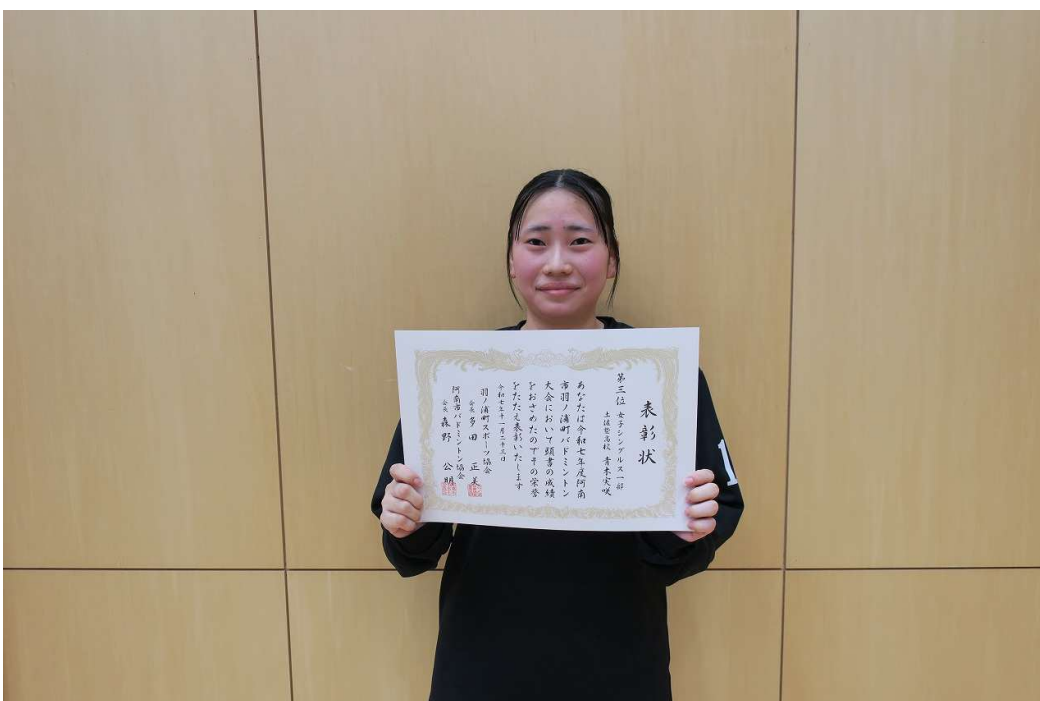 表彰状
第三位 女子シングルス一部
青木実咲
あなたは令和七年度阿南
市羽ノ浦町バドミントン
大会において頭書の成績
をおさめたのでその栄誉
をたたえ表彰いたします
羽ノ浦町スポーツ協会
会長 多田 正美
阿南市バドミントン協会
会長 森野 公明
1